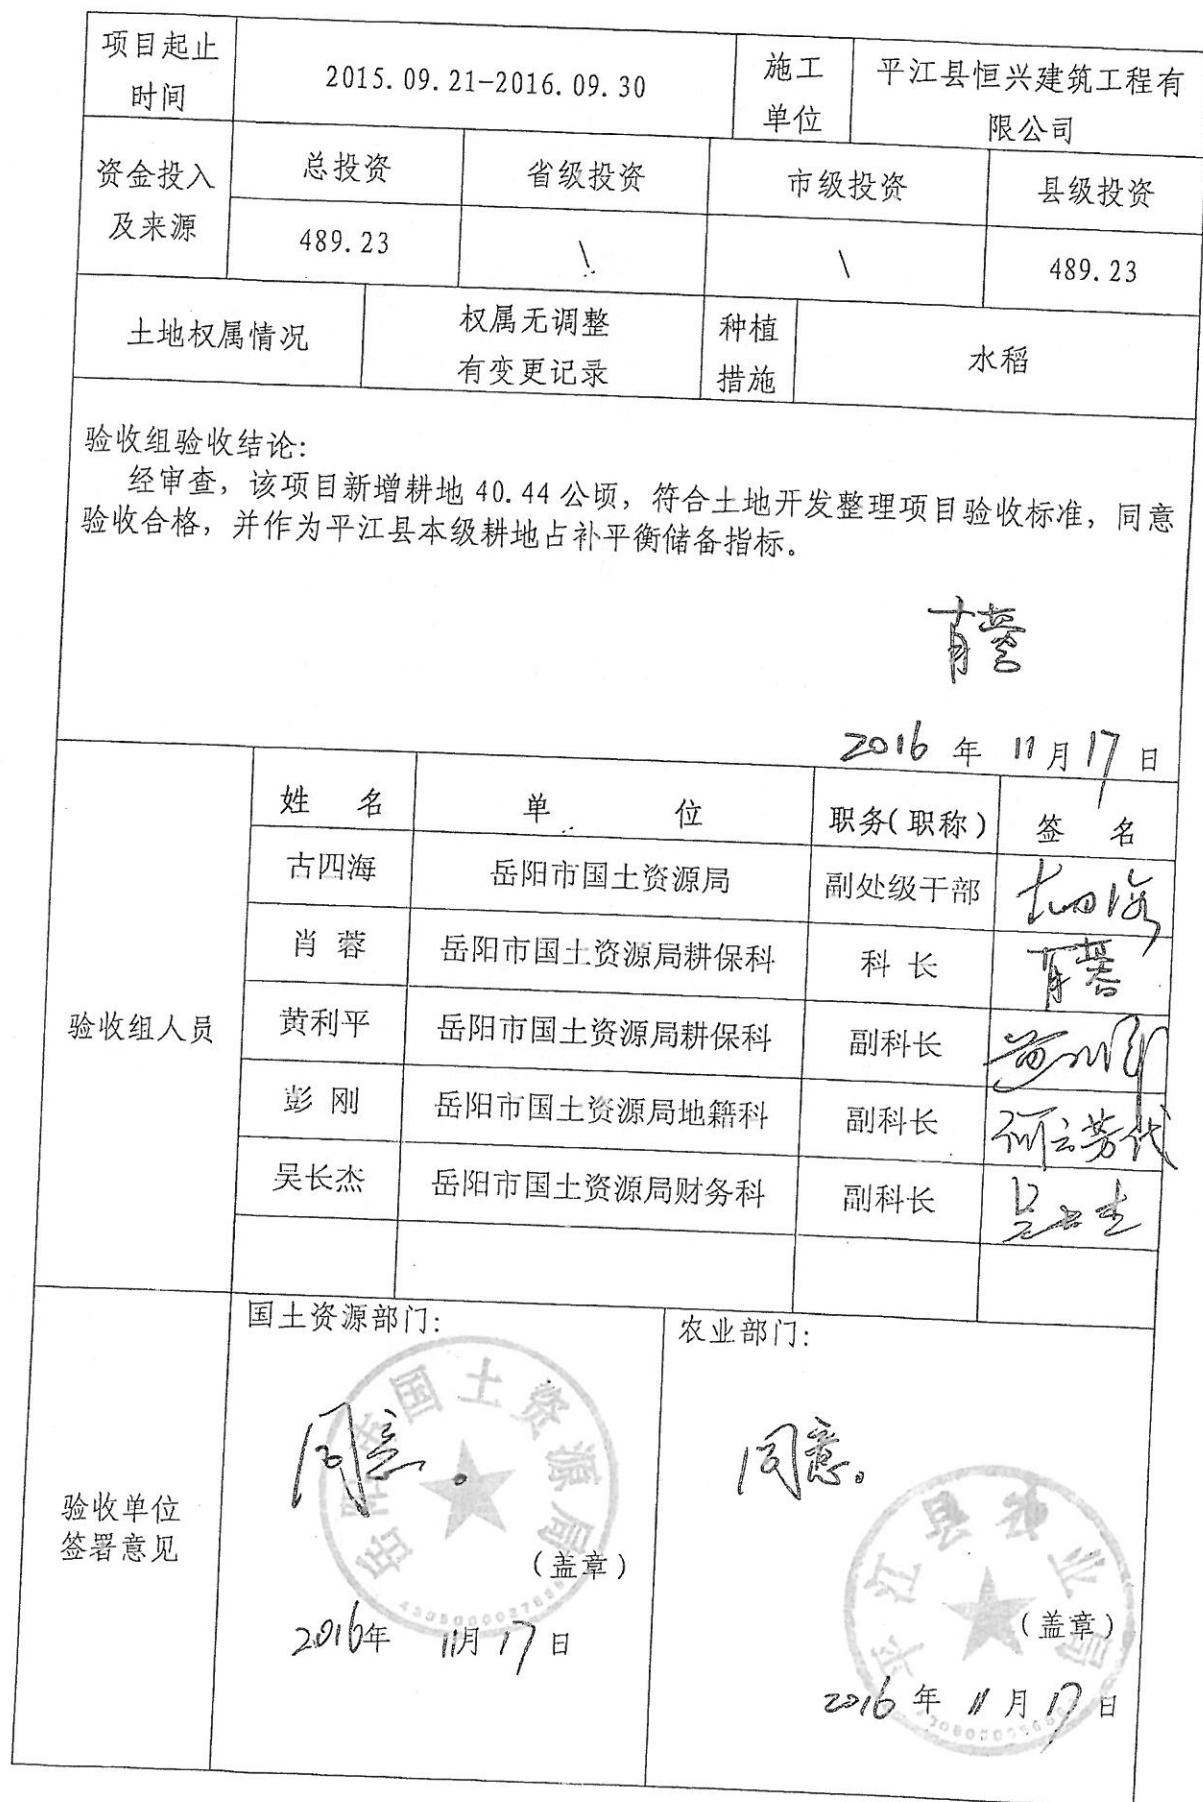 项目起止
时间
2015.09.21-2016.09.30
施工
单位
平江县恒兴建筑工程有
限公司
资金投入
及来源
总投资
省级投资
市级投资
县级投资
489.23
\
\
489.23
土地权属情况
权属无调整
有变更记录
种植
措施
水稻
验收组验收结论：
经审查，该项目新增耕地 40.44 公顷，符合土地开发整理项目验收标准，同意
验收合格，并作为平江县本级耕地占补平衡储备指标。
肖蓉
2016 年 11月17 日
验收组人员
姓 名
单 位
职务(职称)
签 名
古四海
岳阳市国土资源局
副处级干部
古四海
肖 蓉
岳阳市国土资源局耕保科
科 长
肖蓉
黄利平
岳阳市国土资源局耕保科
副科长
黄利平
彭 刚
岳阳市国土资源局地籍科
副科长
何云芳代
吴长杰
岳阳市国土资源局财务科
副科长
吴长杰
验收单位
签署意见
国土资源部门：
同意。
岳阳市国土资源局
(盖章)
2016年 11月17日
农业部门：
同意。
平江县农业局
(盖章)
2016 年 11 月 17 日